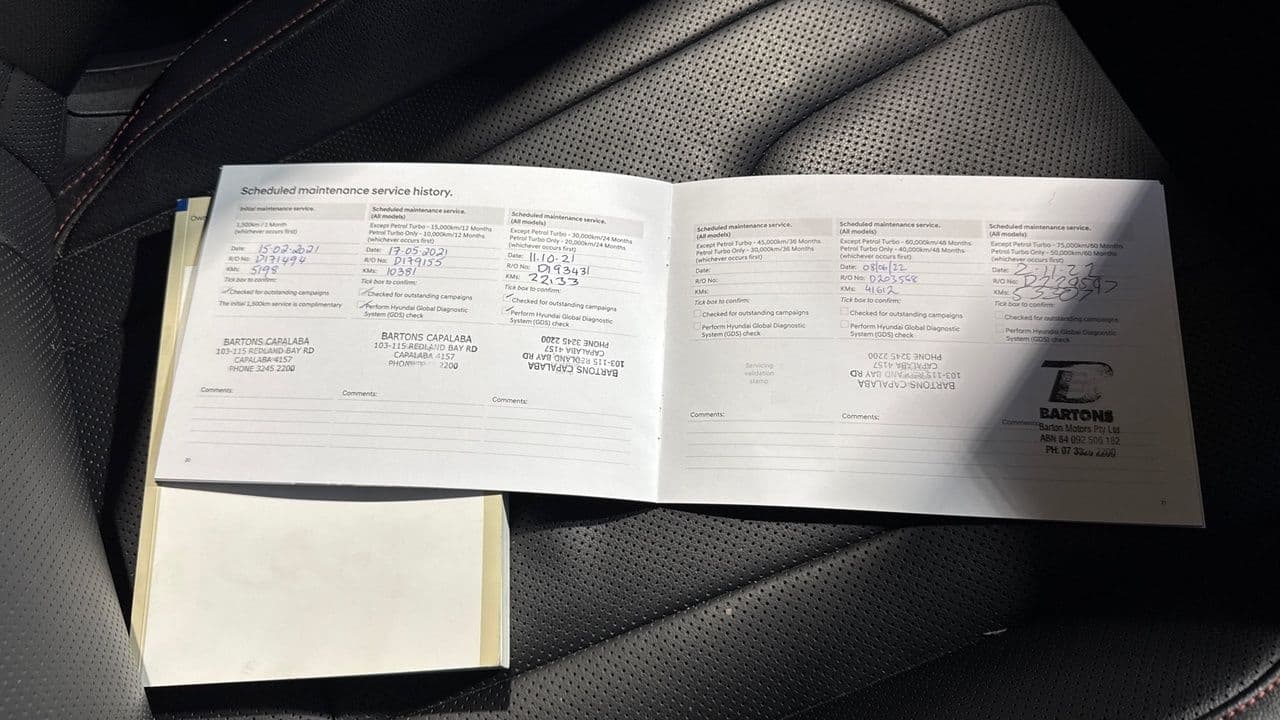 Scheduled maintenance service history.
Initial maintenance service.
1,500km / 1 Month
(whichever occurs first)
Date: 15-02-2021
R/O No: D171494
KMs: 5198
Tick box to confirm:
Checked for outstanding campaigns
The initial 1,500km service is complimentary
BARTONS CAPALABA
103-115 REDLAND BAY RD
CAPALABA 4157
PHONE 3245 2200
Comments:
Scheduled maintenance service.
(All models)
Except Petrol Turbo - 15,000km/12 Months
Petrol Turbo Only - 10,000km/12 Months
(whichever occurs first)
Date: 17.05.2021
R/O No: D179155
KMs: 10381
Tick box to confirm:
Checked for outstanding campaigns
Perform Hyundai Global Diagnostic
System (GDS) check
BARTONS CAPALABA
103-115 REDLAND BAY RD
CAPALABA 4157
2200
Comments:
Scheduled maintenance service.
(All models)
Except Petrol Turbo - 30,000km/24 Months
Petrol Turbo Only - 20,000km/24 Months
(whichever occurs first)
Date: 11.10.21
R/O No: D193431
KMs:
Tick box to confirm:
Checked for outstanding campaigns
Perform Hyundai Global Diagnostic
System (GDS) check
BARTONS CAPALABA
103-115 REDLAND BAY RD
CAPALABA 4157
PHONE 3245 2200
Comments:
20
Scheduled maintenance service.
(All models)
Except Petrol Turbo - 45,000km/36 Months
Petrol Turbo Only - 30,000km/36 Months
(whichever occurs first)
Date:
R/O No:
KMs:
Tick box to confirm:
Checked for outstanding campaigns
Perform Hyundai Global Diagnostic
System (GDS) check
Servicing
validation
stamp
Comments:
Scheduled maintenance service.
(All models)
Except Petrol Turbo - 60,000km/48 Months
Petrol Turbo Only - 40,000km/48 Months
(whichever occurs first)
Date: 08/06/22
R/O No: D203568
KMs: 41612
Tick box to confirm:
Checked for outstanding campaigns
Perform Hyundai Global Diagnostic
System (GDS) check
BARTONS CAPALABA
103-115 REDLAND BAY RD
CAPALABA 4157
PHONE 3245 2200
Comments:
Scheduled maintenance service.
(All models)
Except Petrol Turbo - 75,000km/60 Months
Petrol Turbo Only - 50,000km/60 Months
(whichever occurs first)
Date:
R/O No:
KMs:
Tick box to confirm:
Checked for outstanding campaigns
Perform Hyundai Global Diagnostic
System (GDS) check
BARTONS
Barton Motors Pty Ltd
ABN 64 092 506 182
PH: 07
Comments:
21